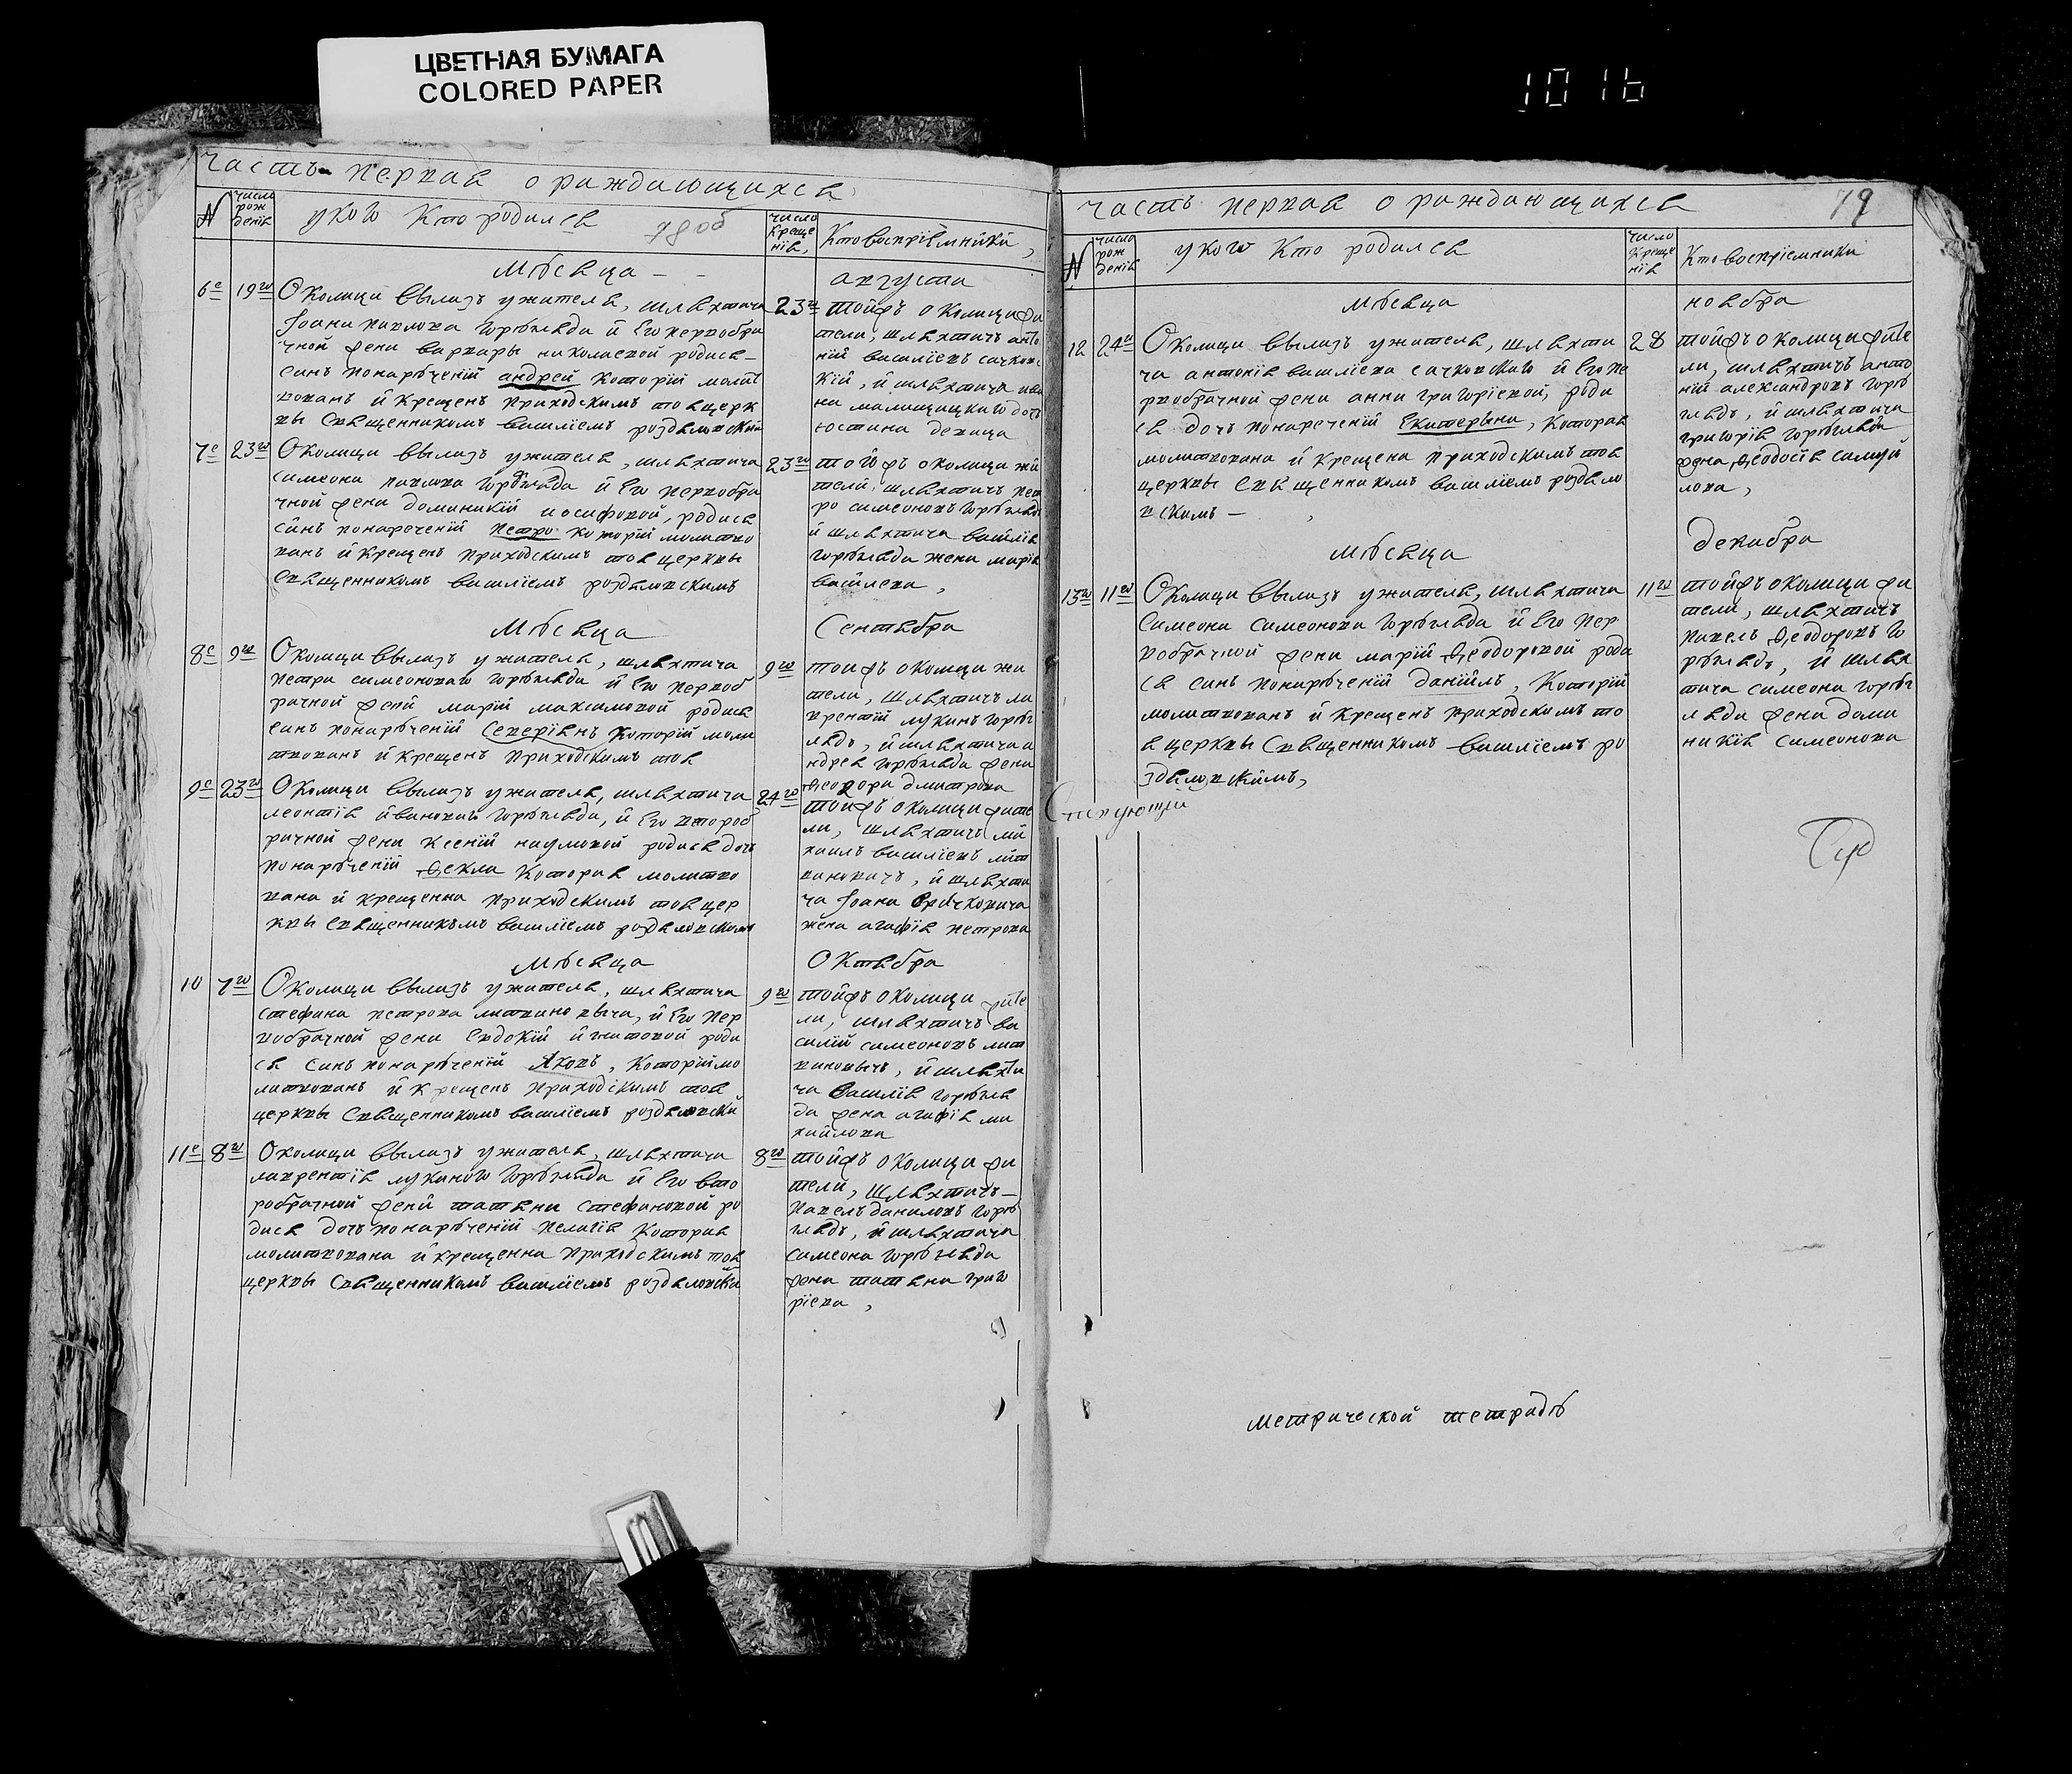 ЦВЕТНАЯ БУМАГА
COLORED PAPER
1016
часть первая о раждающихся
N
число рож денія
у кого Кто родился
78 об
число Креще нія,
Кто воспріємники,
Мѣсяца - -
августа
6е 19го Околици вылазъ ужителя, шляхтича
Іоана павлова горбъляда й Его первобра
чной жени варвары николаевой родися
синъ понарѣченій андрей которій молит
вованъ й крещенъ приходскимъ тоя церк
вы Священникомъ василіемъ роздяловским
23го тойжъ околици жи
тели, шляхтичъ анто
ній василіевъ сачков
кій, й шляхтича ива
на малишицкого дочъ
юстина девица
7е 23го Околици вылазъ ужителя, шляхтича
симеона павлова горбъляда й Его первобра
чной жени доминикій иосифовой, родися
синъ понареченій Петро которій молитво
ванъ й крещенъ приходскимъ тоя церквы
Священникомъ василіемъ роздяловскимъ
23го тойжъ околици жи
тели, шляхтичъ пет
ро симеоновъ горбъляд
й шляхтича василія
горбъляда жена марія
васйлева,
Мѣсяца
Сентября
8е 9го Околици вылазъ ужителя, шляхтича
петра симеонова горбъляда й Его первоб
рачной жени марій максимовой родися
синъ понарѣченій Северіянъ которій моли
твованъ й крещенъ приходскимъ тоя
9го тоижъ околици жи
тели, шляхтичъ ла
врентій лукинъ горбъ
лядъ, й шляхтича а
ндрея горбъляда жена
Ѳеодора дмитрова
9е 23го Околици вылазъ ужителя, шляхтича
леонтія йвановай горбъляда, й Его второб
рачной жени Ксеній наумовой родися дочъ
понарѣченій Ѳекла Которая молитво
вана й крещенна приходскимъ тоя цер
квы священникъмъ василіемъ роздяловским
24го тойжъ околици жите
ли, шляхтичъ ми
хаилъ василіевъ лит
виновичъ, й шляхти
ча Іоана
жена агафія петрова
Мѣсяца
Октября
10 7го Околици вылазъ ужителя, шляхтича
стефана петрова литвиновыча, й Его пер
вобрачной жени Евдокій игнатовой роди
ся синъ понарѣченій Яковъ, Которій мо
литвованъ й крещенъ приходскимъ тоя
церквы Священникомъ василіемъ роздяловски
9го тойжъ околици жите
ли, шляхтичъ ва
силій симеоновъ лит
виновычъ, й шляхти
ча василія горбъля
да жена агафія ми
хайлова
11е 8го Околици вылазъ ужителя, шляхтича
лаврентія лукиного горбъляда й Его вто
робрачной жени татяни стефановой ро
дися дочъ понарѣченій пелагія Которая
молитвована й крещенна приходскимъ тоя
церквы Священникомъ василіемъ роздяловски
8го тойжъ околици жи
тели, шляхтичъ
павелъ даниловъ горбъ
лядъ, й шляхтича
симеона горбъляда
жена татяна григо
ріева,
часть первая о раждающихся
79
N
число рож денія
у кого Кто родился
число Креще нія
Кто воспріємники
Мѣсяца
ноября
12 24го Околици вылазъ ужителя, шляхти
ча антонія василіева сачковского й Его пе
рвобрачной жени анни григоріевой, роди
ся дочъ понареченій Екатерына, Которая
молитвована й крещена приходскимъ тоя
церквы Священникомъ василіемъ роздяло
вскимъ -
28 тойжъ околици жите
ли, шляхтичъ анто
ній александровъ горбъ
лядъ, й шляхтича
григорія горбъляда
жена, Ѳеодосія самуй
лова,
Мѣсяца
декабря
13го 11го Околици вылазъ ужителя, шляхтича
Симеона симеонова горбъляда й Его пер
вобрачной жени марій Ѳеодоровой роди
ся синъ понарѣченій даніилъ, Которій
молитвованъ й крещенъ приходскимъ то
я церквы Священникомъ василіемъ ро
здяловскимъ,
11го тойжъ околици жи
тели, шляхтичъ
павелъ Ѳеодоровъ го
рбълядъ, й шлях
тича симеона горбъ
ляда жена доми
никія симеонова
метрической тетрадѣ